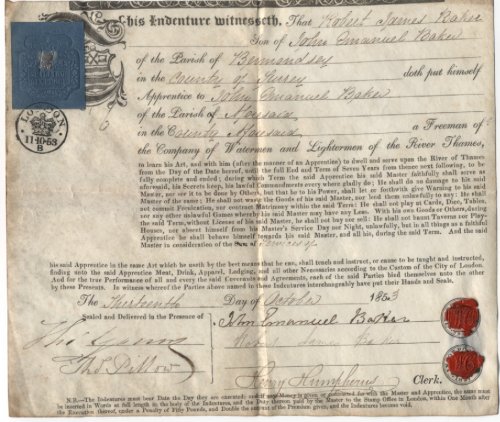 This Indenture witnesseth, That Robert James Baker
Son of John Emanuel Baker
of the Parish of Bermondsey
in the County of Surrey doth put himself
Apprentice to John Emanuel Baker
of the Parish of Aforesaid
in the County Aforesaid a Freeman of
the Company of Watermen and Lightermen of the River Thames,
to learn his Art, and with him (after the manner of an Apprentice) to dwell and serve upon the River of Thames
from the Day of the Date hereof, until the full End and Term of Seven Years from thence next following, to be
fully complete and ended; during which Term the said Apprentice his said Master faithfully shall serve as
aforesaid, his Secrets keep, his lawful Commandments every where gladly do; He shall do no damage to his said
Master, nor see it to be done by Others, but that he to his Power, shall let or forthwith give Warning to his said
Master of the same; He shall not waste the Goods of his said Master, nor lend them unlawfully to any; He shall
not commit Fornication, nor contract Matrimony within the said Term; He shall not play at Cards, Dice, Tables,
nor any other unlawful Games whereby his said Master may have any Loss. With his own Goods or Others, during
the said Term, without License of his said Master, he shall not buy nor sell; He shall not haunt Taverns or Play-
Houses, nor absent himself from his Master's Service Day nor Night, unlawfully, but in all things as a faithful
Apprentice he shall behave himself towards his said Master, and all his, during the said Term. And the said
Master in consideration of the Services of
his said Apprentice in the same Art which he useth by the best means that he can, shall teach and instruct, or cause to be taught and instructed,
finding unto the said Apprentice Meat, Drink, Apparel, Lodging, and all other Necessaries according to the Custom of the City of London.
And for the true Performance of all and every the said Covenants and Agreements, each of the said Parties bind themselves unto the other
by these Presents. In witness whereof the Parties above named to these Indentures interchangeably have put their Hands and Seals.
The Thirteenth Day of October 1853
Sealed and Delivered in the Presence of
John Emanuel Baker
Robert James Baker
Thos Pillow
Henry Humpherus Clerk.
N.B.—The Indentures must bear Date the Day they are executed; and if any Money is given or contracted for with the Master and Apprentice, the same must
be inserted in Words at full length in the body of the Indentures, and the Duty thereon paid by the Master to the Stamp Office in London, within One Month after
the Execution thereof, under a Penalty of Fifty Pounds, and Double the amount of the Premium given, and the Indentures become void.
LONDON
11·10·53